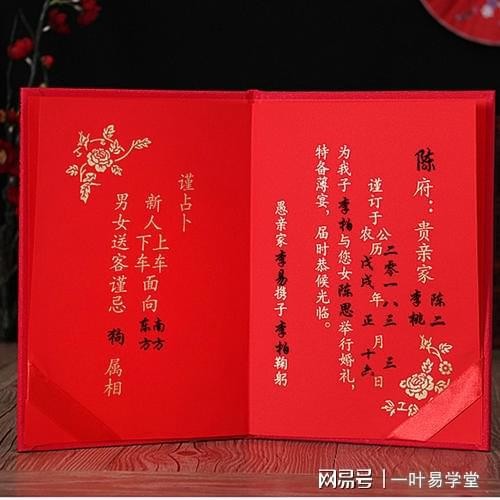 陈府：贵亲家 陈二 李桃
谨订于公农历二零一八戊戌年三正月三十六日
为我子李柏与您女陈思举行婚礼，
特备薄宴，届时恭候光临。
愚亲家李易携子李柏鞠躬
谨占卜
新人上车下车面向南方东方
男女送客谨忌狗属相
网易号 | 一叶易学堂